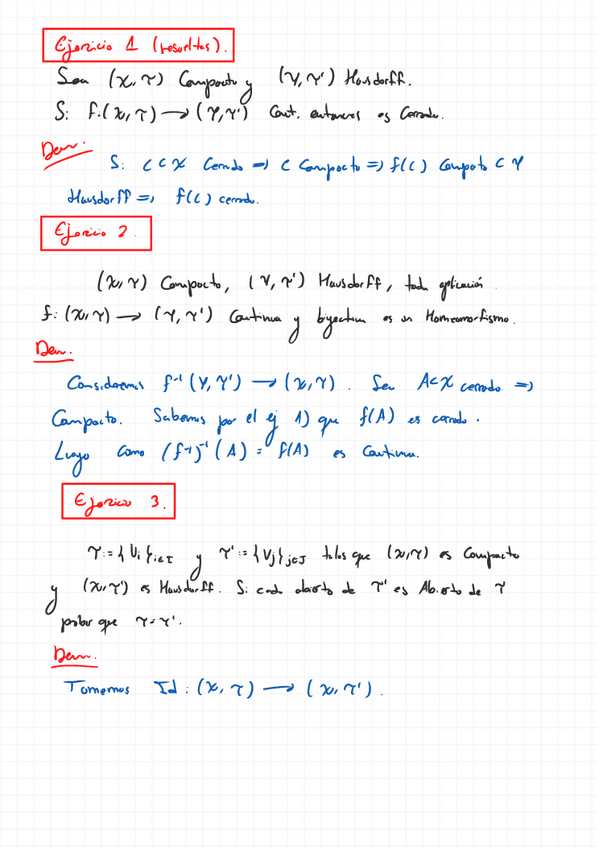 Ejercicio 1 (resueltos).
Sea (X, τ) Compacto y (Y, τ') Hausdorff.
Si f:(X, τ) → (Y, τ') Cont. entonces es Cerrada.
Dem.
Si C ⊂ X Cerrado => C Compacto => f(C) Compacto ⊂ Y
Hausdorff => f(C) cerrado.
Ejercicio 2.
(X, τ) Compacto, (Y, τ') Hausdorff, toda aplicación
f: (X, τ) → (Y, τ') Continua y biyectiva es un Homeomorfismo.
Dem.
Consideremos f⁻¹ (Y, τ') → (X, τ). Sea A ⊂ X cerrado =>
Compacto. Sabemos por el ej 1) que f(A) es cerrado.
Luego como (f⁻¹)⁻¹ (A) = f(A) es Continua.
Ejercicio 3.
τ := {Ui}i∈I y τ' := {Vj}j∈J tales que (X, τ) es Compacto
y (X, τ') es Hausdorff. Si cada abierto de τ' es Abierto de τ
probar que τ = τ'.
Dem.
Tomemos Id : (X, τ) → (X, τ').